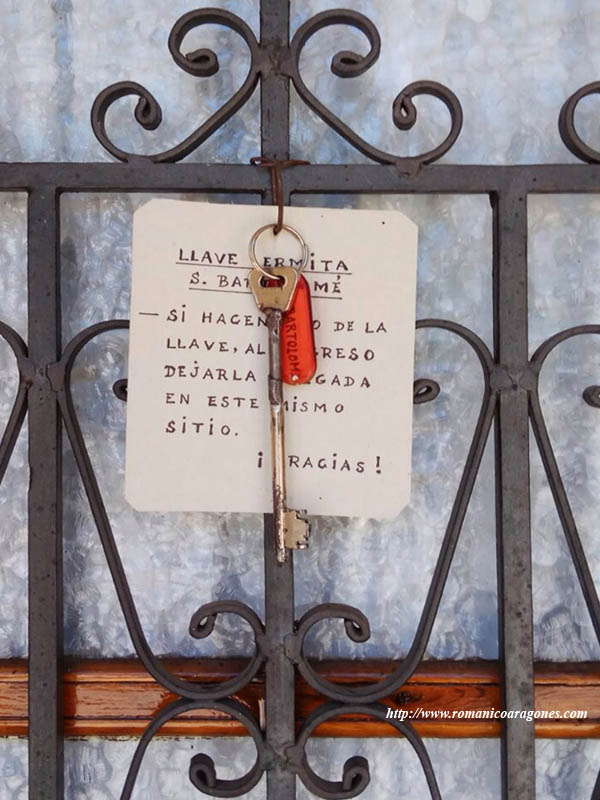 LLAVE ERMITA
S. BARTOLOMÉ
— SI HACEN USO DE LA
LLAVE, AL REGRESO
DEJARLA COLGADA
EN ESTE MISMO
SITIO.
¡GRACIAS!
BARTOLOMÉ
http://www.romanicoaragones.com